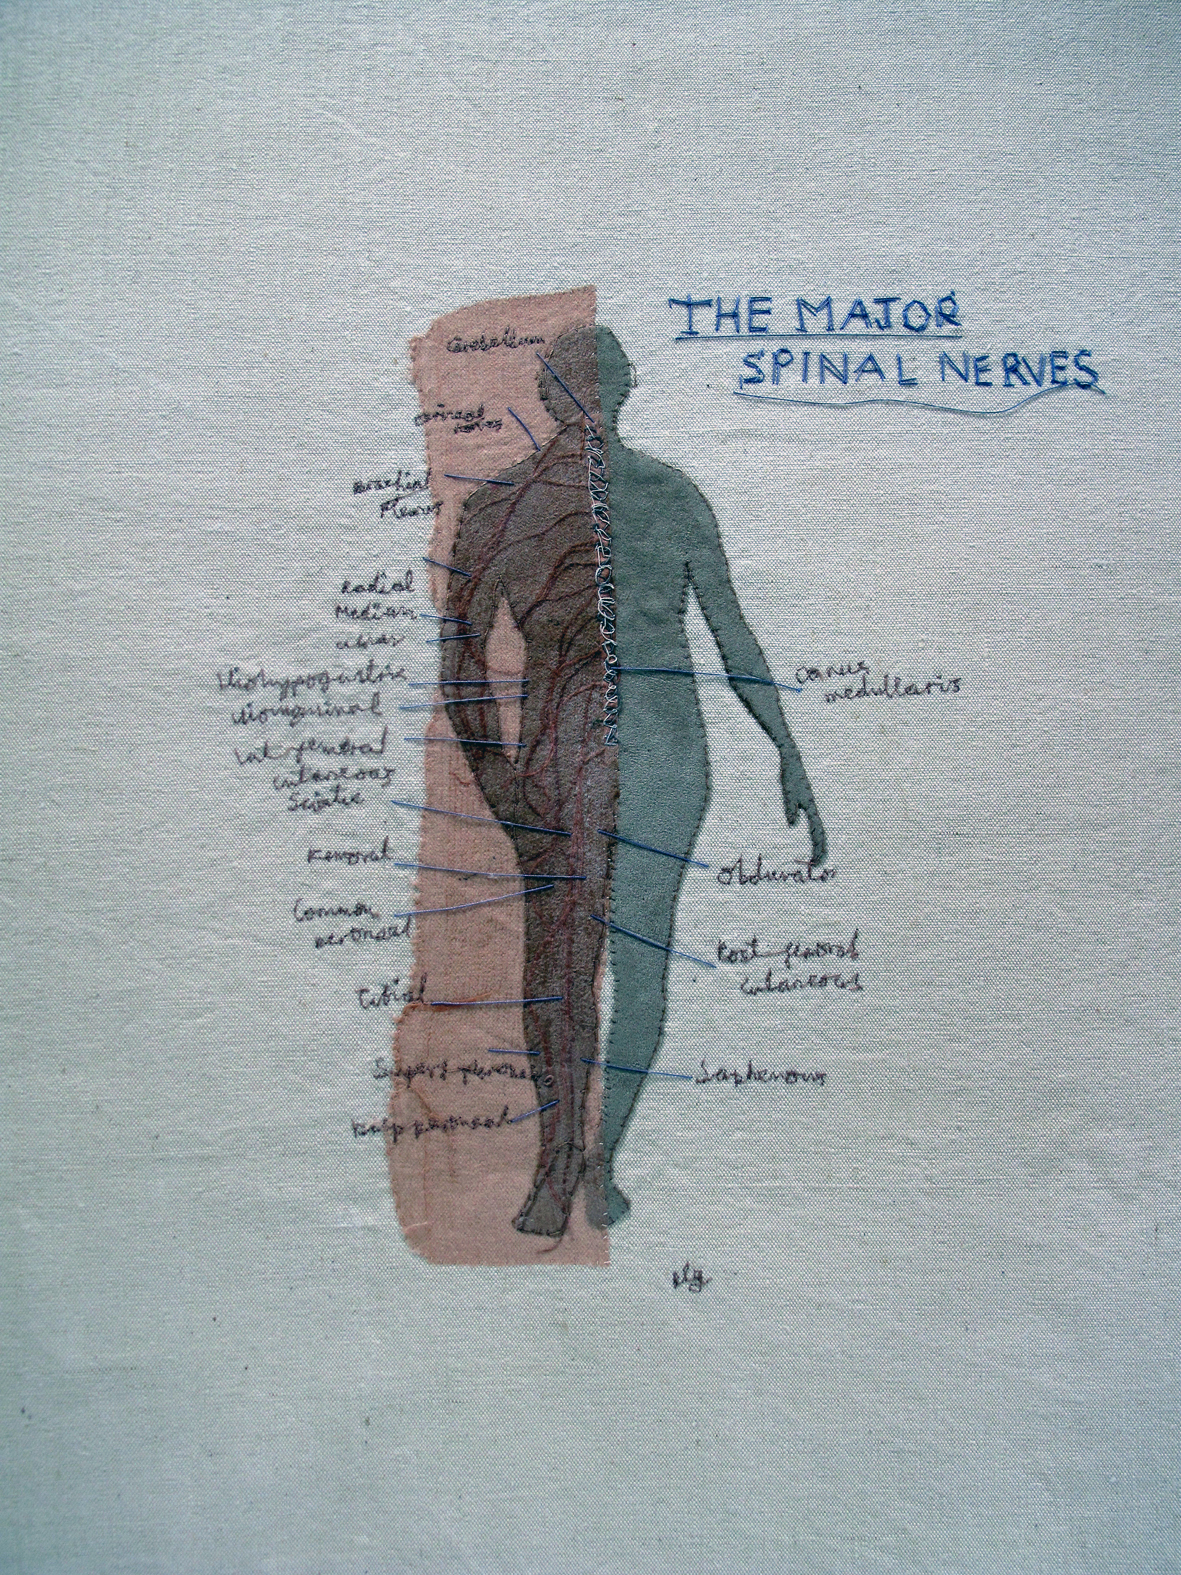 THE MAJOR
SPINAL NERVES
Cerebellum
Brachial
Plexus
Radial
Median
Ulnar
Iliohypogastric
Ilioinguinal
Lat femoral
cutaneous
Sciatic
Femoral
Common
peroneal
Tibial
Deep peroneal
Conus
medullaris
Obdurator
Post femoral
cutaneous
Saphenous